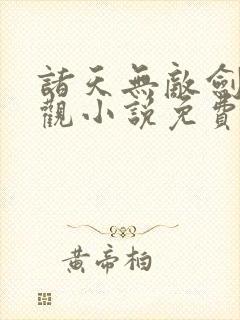 諸天無敵劍
觀小說免費
黃帝柏